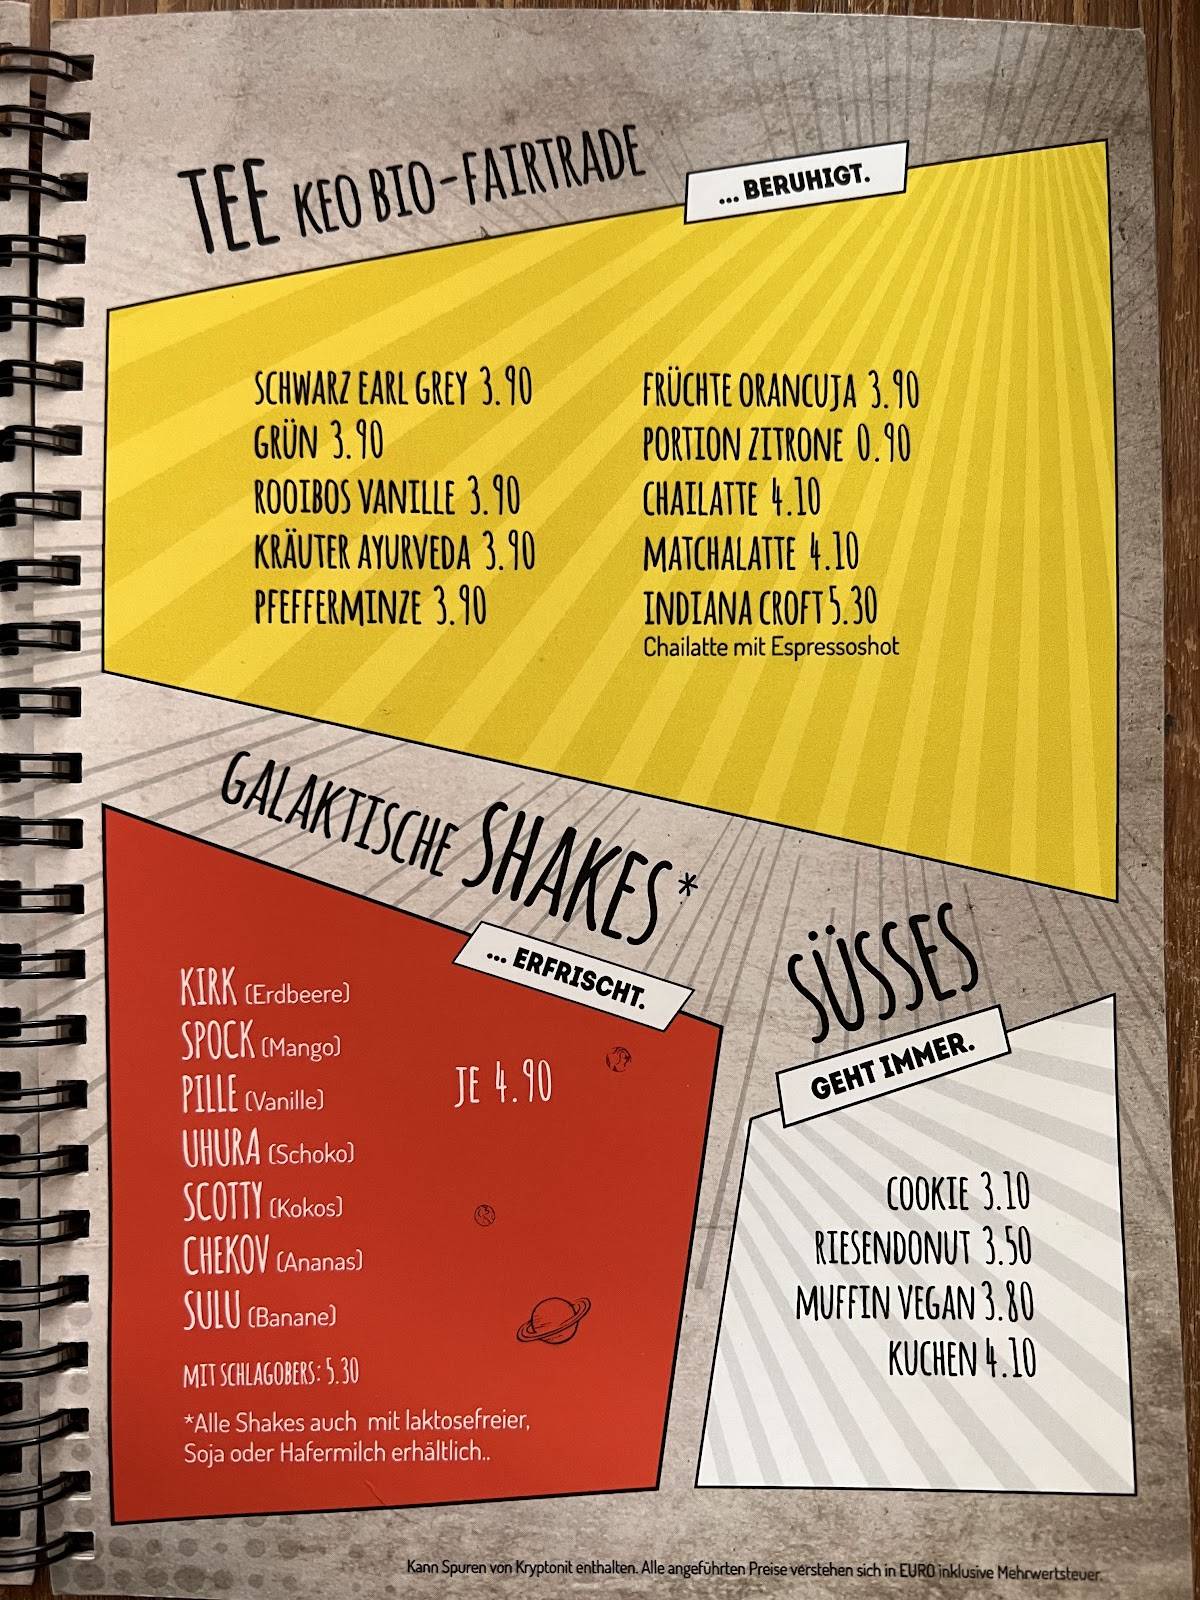 TEE KEO BIO-FAIRTRADE
... BERUHIGT.
SCHWARZ EARL GREY 3.90
GRÜN 3.90
ROOIBOS VANILLE 3.90
KRÄUTER AYURVEDA 3.90
PFEFFERMINZE 3.90
FRÜCHTE ORANCUJA 3.90
PORTION ZITRONE 0.90
CHAILATTE 4.10
MATCHALATTE 4.10
INDIANA CROFT 5.30
Chailatte mit Espressoshot
GALAKTISCHE SHAKES*
... ERFRISCHT.
KIRK (Erdbeere)
SPOCK (Mango)
PILLE (Vanille)
UHURA (Schoko)
SCOTTY (Kokos)
CHEKOV (Ananas)
SULU (Banane)
JE 4.90
MIT SCHLAGOBERS: 5.30
*Alle Shakes auch mit laktosefreier,
Soja oder Hafermilch erhältlich..
SÜSSES
GEHT IMMER.
COOKIE 3.10
RIESENDONUT 3.50
MUFFIN VEGAN 3.80
KUCHEN 4.10
Kann Spuren von Kryptonit enthalten. Alle angeführten Preise verstehen sich in EURO inklusive Mehrwertsteuer.